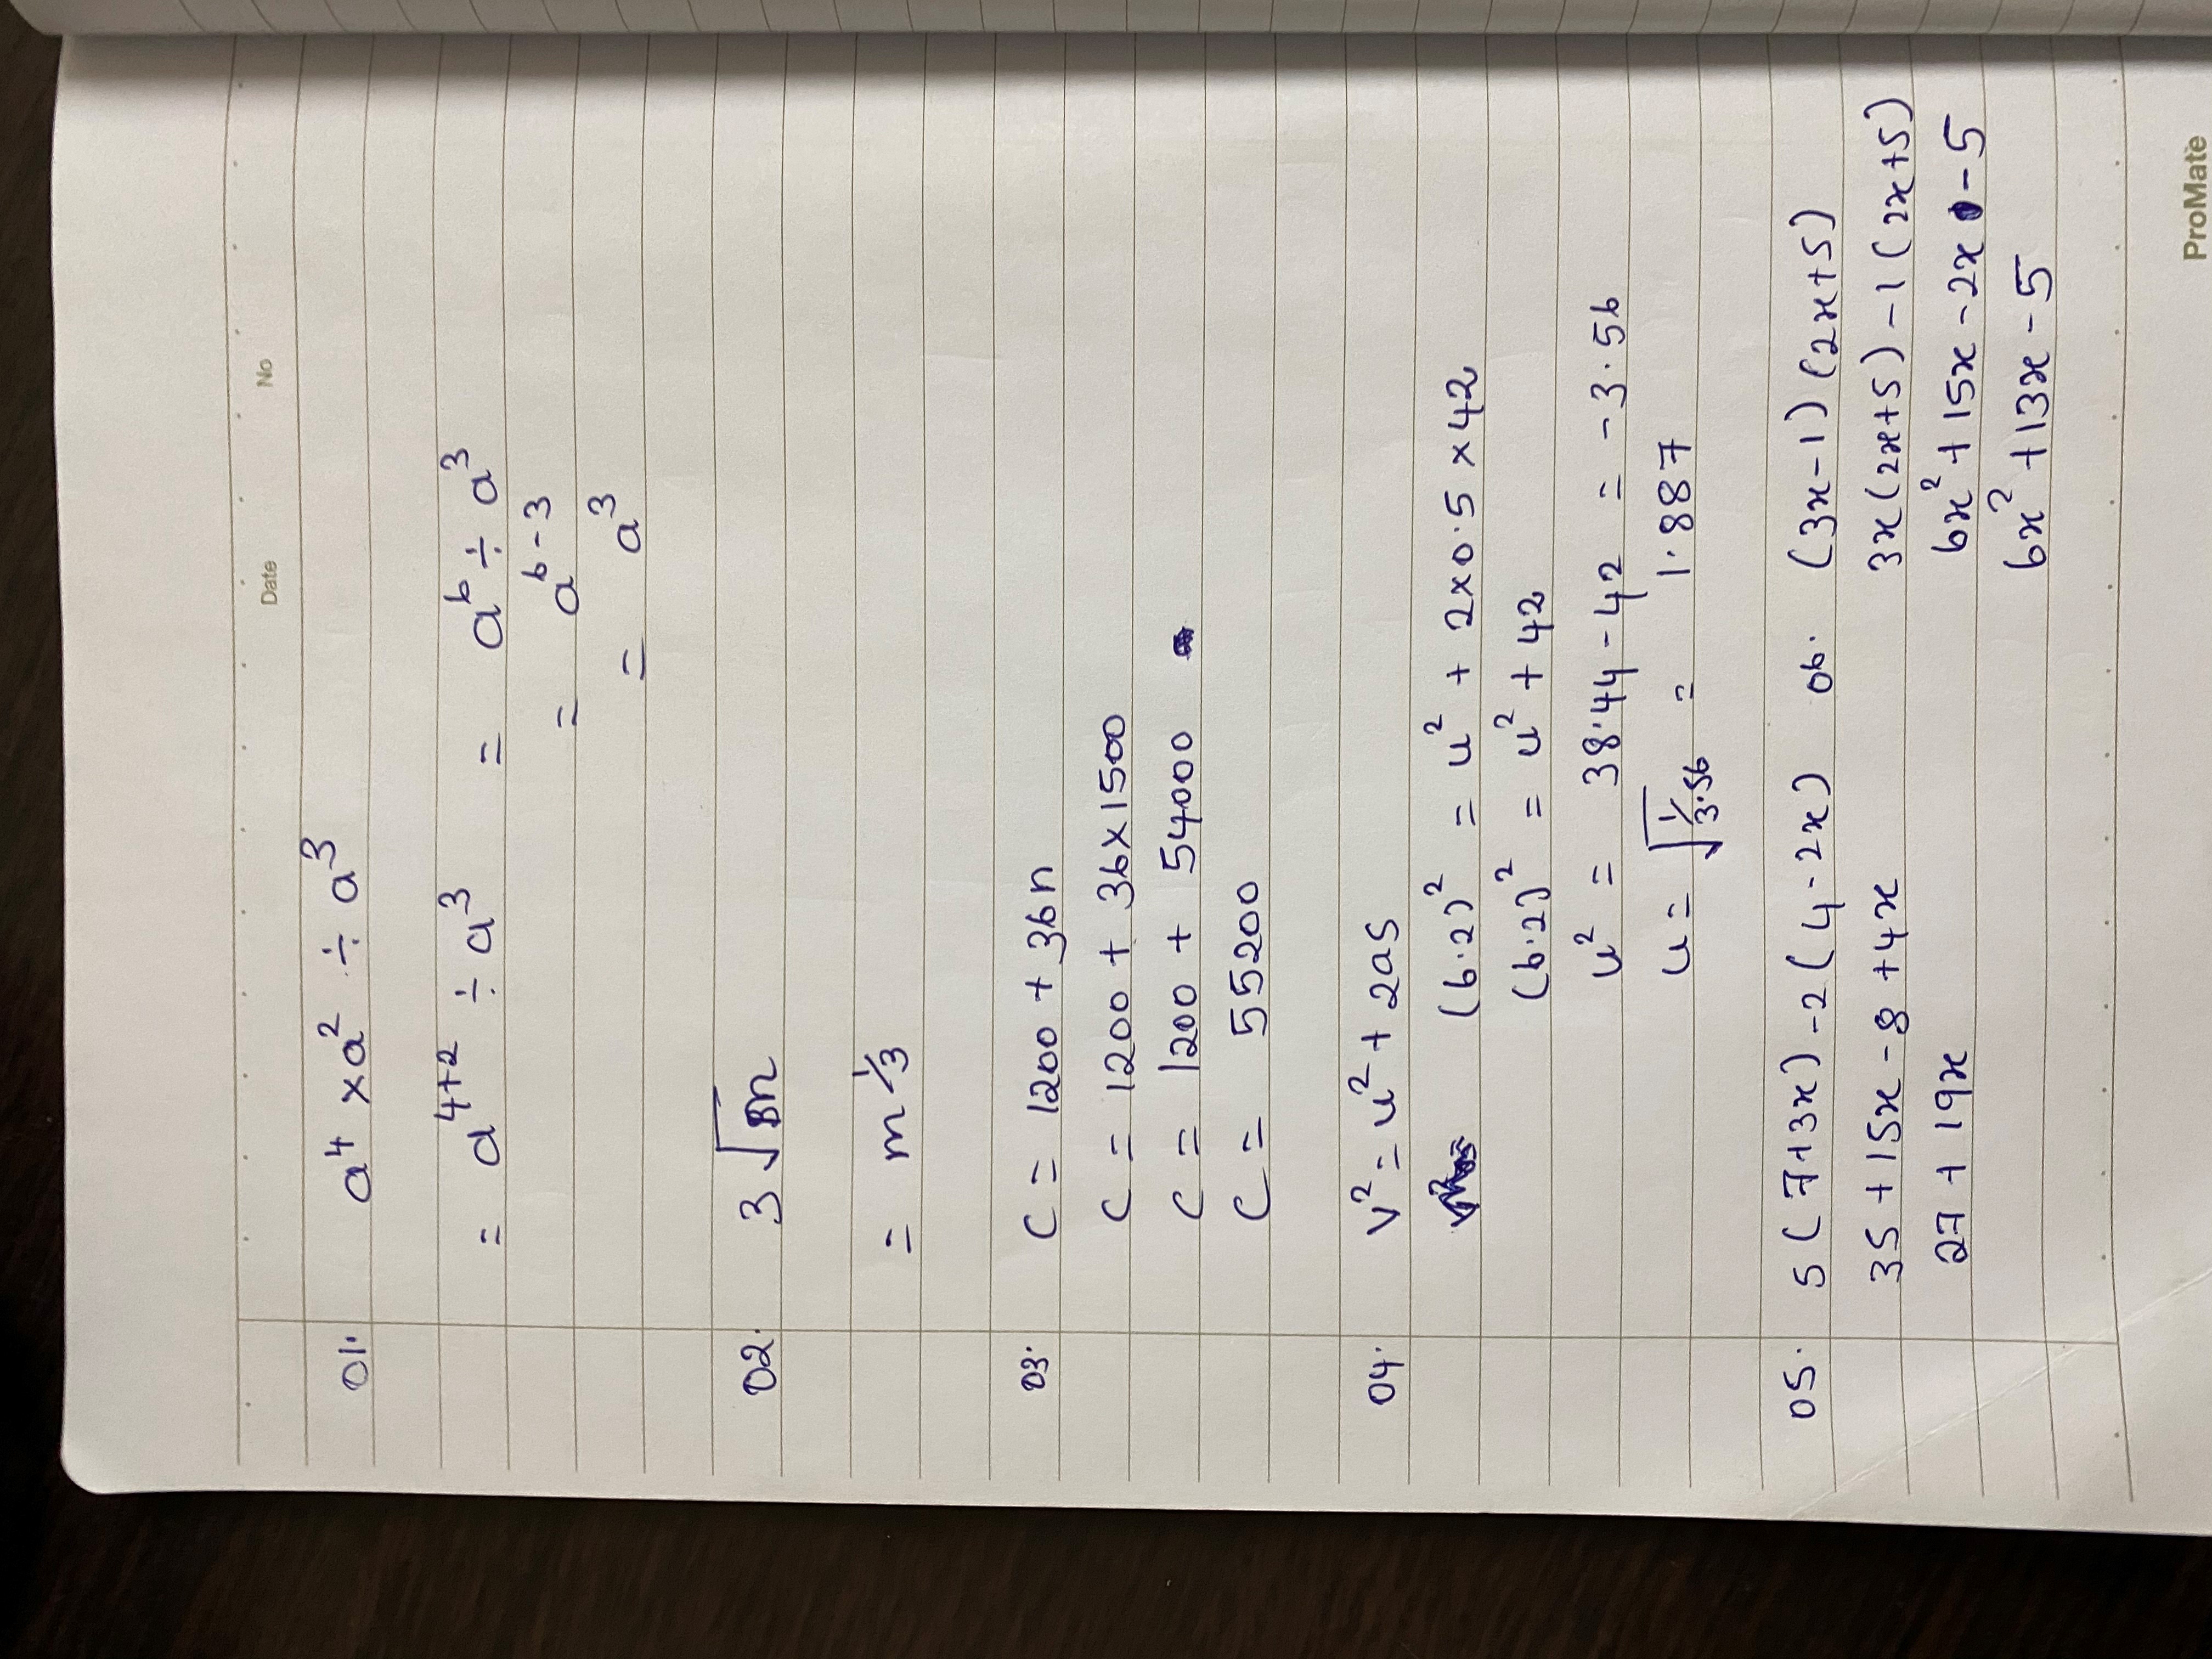 Date No
01. a⁴ × a² ÷ a³
= a⁴⁺² ÷ a³ = a⁶ ÷ a³
= a⁶⁻³
= a³
02. 3 √m
= m 1/3
03. C = 1200 + 36n
C = 1200 + 36×1500
C = 1200 + 54000
C = 55200
04. v² = u² + 2as
(6.2)² = u² + 2×0.5×42
(6.2)² = u² + 42
u² = 38.44 - 42 = -3.56
u = √1/3.56 = 1.887
05. 5(7+3x) -2(4-2x) 06. (3x-1)(2x+5)
35 + 15x - 8 + 4x 3x(2x+5) -1(2x+5)
27 + 19x 6x² + 15x - 2x - 5
6x² + 13x - 5
ProMate